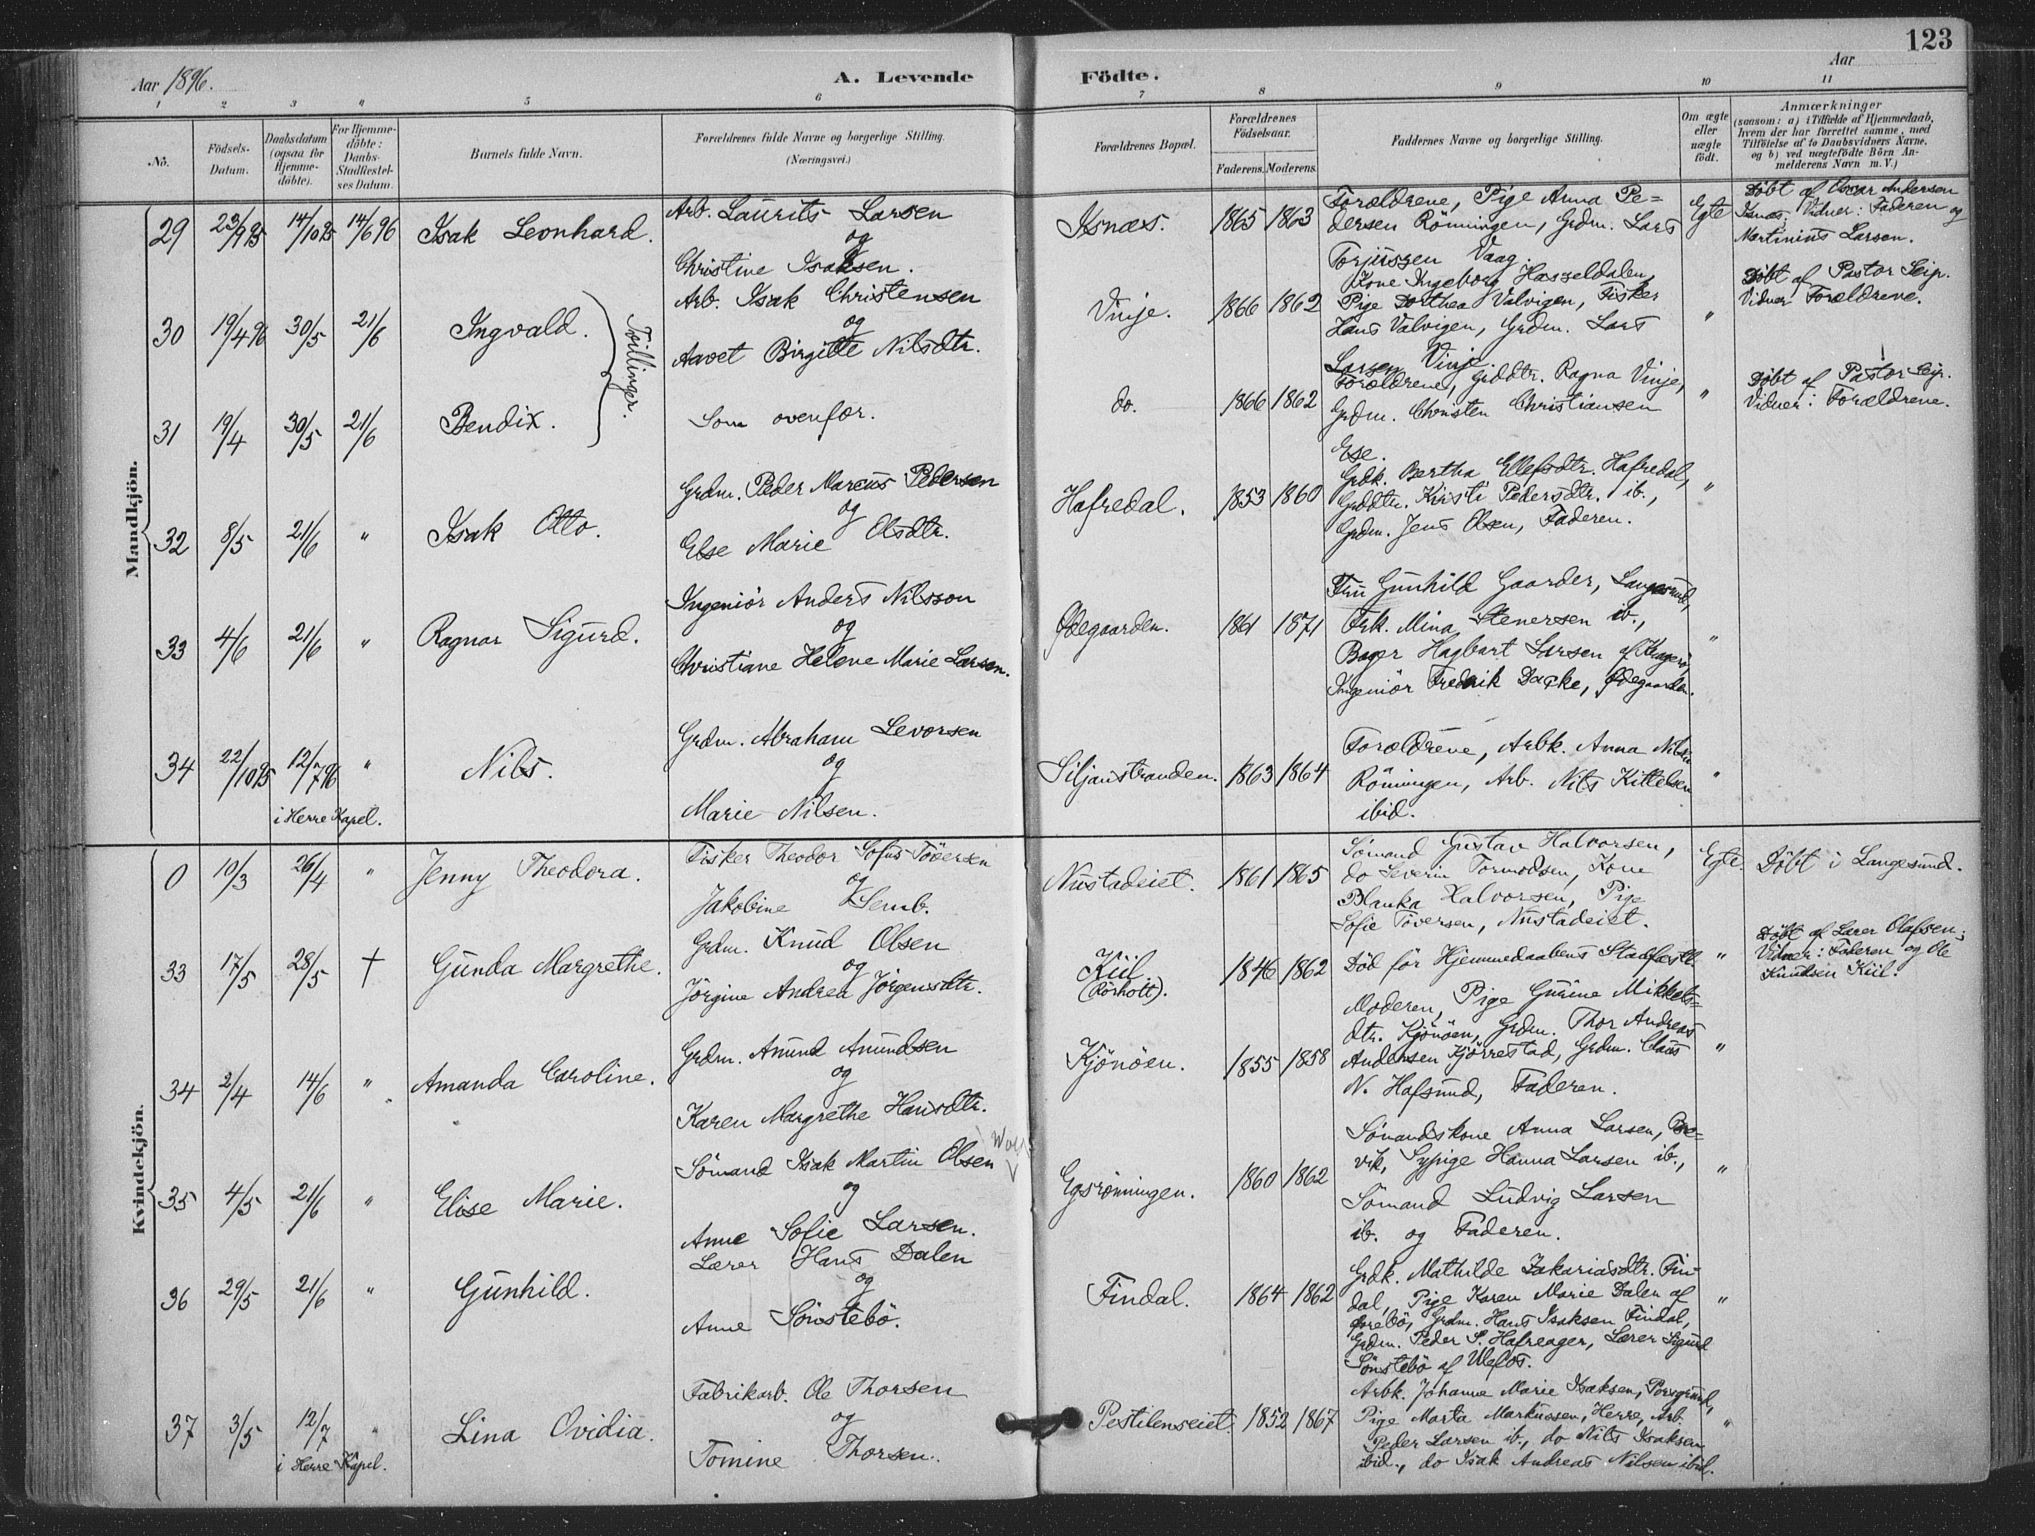 123
Aar 1896.
A. Levende Fødte.
Aar
1 2 3 " 5 6 7 8 9 10 11
No.
Fødsels-Datum.
Daabsdatum (ogsaa for Hjemme-døbte).
For Hjemme-døbte: Daabs-Stadfæstel-ses Datum.
Barnets fulde Navn.
Forældrenes fulde Navne og borgerlige Stilling.
(Næringsvei.)
Forældrenes Bopæl.
Forældrenes Fødselsaar.
Faderens. Moderens.
Faddernes Navne og borgerlige Stilling.
Om ægte eller uægte født.
Anmærkninger
(saasom: a) i Tilfælde af Hjemmedaab,
hvem der har forrettet samme, med
Tilføielse af to Daabsvidners Navne,
og b) ved uægtefødte Børn An-
melderens Navn m. V.)
Mandkjøn.
29 23/9 95 14/10 95 14/6 96 Isak Leonhard.
Arb. Laurits Larsen
og
Christine Isaksen.
Isnæs. 1865 1863
Forældrene, Pige Anna Pe=
dersen Rönningen, Grdm. Lars
Torjussen Vaag.
Egte
Döbt af Oscar Andersen
Isnæs. Vidner: Faderen og
Martinius Larsen.
30 19/4 96 30/5 21/6 Ingvald.
Tvillinger.
Arb. Isak Christensen
og
Aavet Birgitte Nilsdtr.
Vinje. 1866 1862
Kone Ingeborg Hasseldalen,
Pige Dorthea Valvigen, Fisker
Hans Valvigen, Grdm. Lars
Larsen Vinje
"
Döbt af Pastor Seip.
Vidner Forældrene.
31 19/4 30/5 21/6 Bendix.
Som ovenfor.
do. 1866 1862
Forældrene, Grddtr. Ragna Vinje,
Grdm. Christen Christiansen
Ese.
"
Döbt af Pastor Seip.
Vidner: Forældrene.
32 8/5 21/6 " Isak Otto.
Grdm. Peder Marcus Pedersen
og
Else Marie Olsdtr.
Hafredal. 1853 1860
Grdk. Bertha Ellefsdtr. Hafredal,
Grddtr. Kirsti Pedersdtr. ib.,
Grdm. Jens Olsen, Faderen.
"
33 4/6 21/6 " Ragnar Sigurd.
Ingeniör Anders Nilsson
og
Christiane Helene Marie Larsen.
Ødegaarden. 1861 1871
Fru Gunhild Gaarder, Langesund,
Frk. Mina Stenersen ib.,
Bager Hagbart Larsen af Kragerö,
Ingeniör Fredrik Dacke, Ødegaarden.
"
34 22/10 95 12/7 96 " Nils.
i Herre Kapel.
Grdm. Abraham Levorsen
og
Marie Nilsen.
Siljanstranden. 1863 1864
Forældrene, Arbk. Anna Nilsen
Röningen, Arb. Nils Kittelsen
ibid.
"
Kvindekjøn.
0 10/3 26/4 " Jenny Theodora.
Fisker Theodor Sofus Töversen
og
Jakobine Semb.
Nustadeiet. 1861 1865
Sömand Gustav Halvorsen,
do Severin Tormodsen, Kone
Blanka Halvorsen, Pige
Sofie Töversen, Nustadeiet.
Egte.
Döbt i Langesund.
33 17/5 28/5 † Gunda Margrethe.
Grdm. Knud Olsen
og
Jörgine Andrea Jörgensdtr.
Kiil
(Rörholt).
1846 1862
Död för Hjemmedaabens Stadfæstelse
"
Döbt af Lærer Olafsen;
Vidner: Faderen og Ole
Knudsen Kiil.
34 2/4 14/6 " Amanda Caroline.
Grdm. Amund Amundsen
og
Karen Margrethe Hansdtr.
Kjönöen. 1855 1858
Moderen, Pige Gurine Mikkels=
dtr. Kjönöen, Grdm. Thor Andreas
Andersen Kjörrestad, Grdm. Claus
N. Hafsund, Faderen.
"
35 4/5 21/6 " Elise Marie.
Sömand Isak Martin Olsen
og
Anne Sofie Larsen.
Egsröningen. 1860 1862
Sömandskone Anna Larsen, Bre=
vik, Sypige Hanna Larsen ib.,
Sömand Ludvig Larsen
ib. og Faderen.
"
36 29/5 21/6 " Gunhild.
Lærer Hans Dalen
og
Anne Sönstebö.
Findal. 1864 1862
Grdk. Mathilde Zakariasdtr. Fin-
dal, Pige Karen Marie Dalen af
Grdm. Hans Isaksen Findal,
Grdm. Peder S. Hafreager, Lærer Sigurd
Sönstebö af Ulefos.
"
37 3/5 12/7 " Lina Ovidia.
i Herre Kapel.
Fabrikarb. Ole Thorsen
og
Tomine Thorsen.
Pestilenseiet. 1852 1867
Arbk. Johanne Marie Isaksen, Porsgrund,
Pige Marta Markussen, Herre, Arb.
Peder Larsen ib., do Nils Isaksen
ibid., do Isak Andreas Nilsen ibid.
"